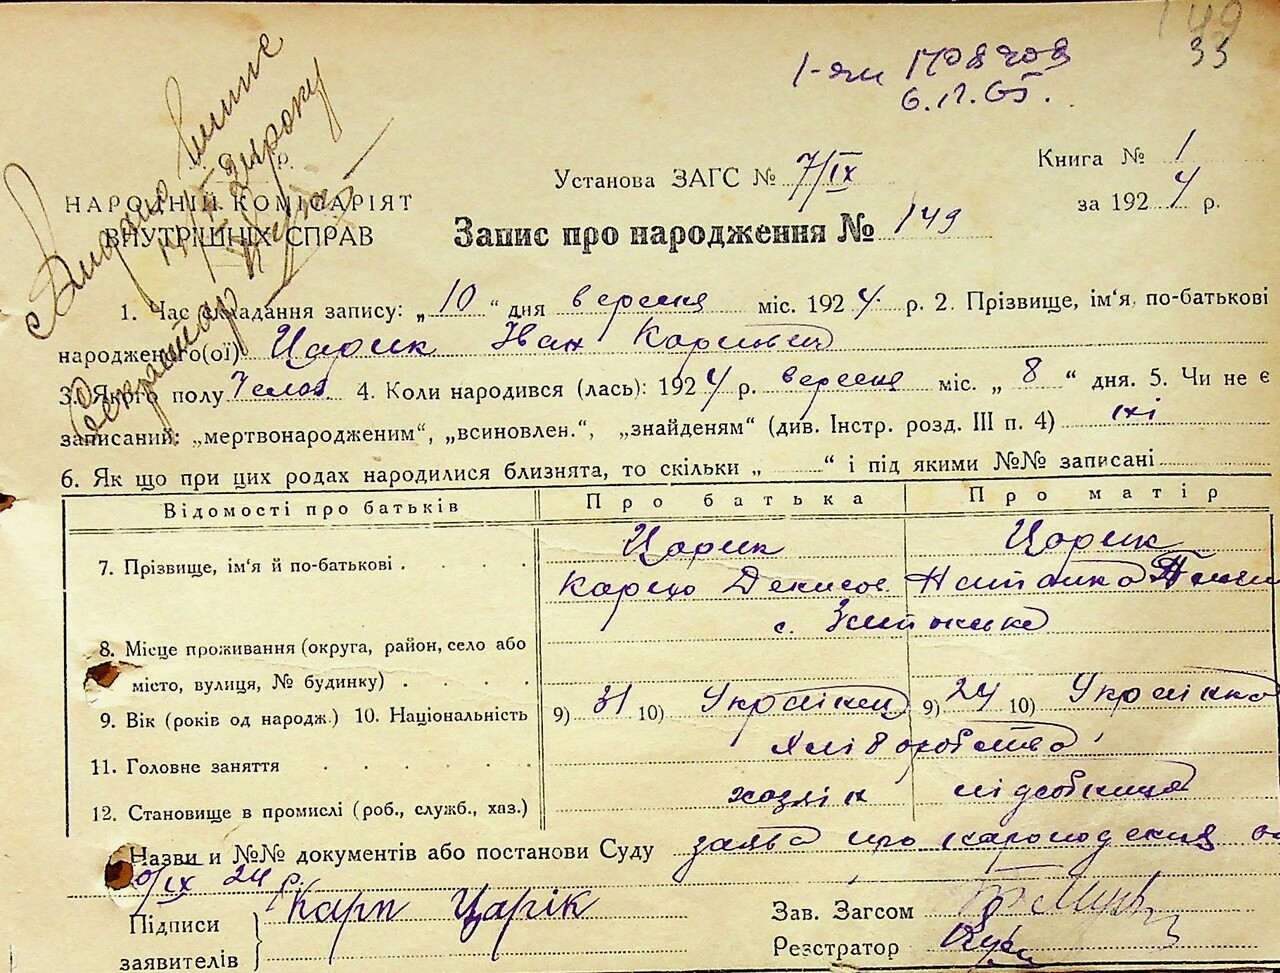 149
33
6.12.65.
Установа ЗАГС № 7/IX
Книга № 1
за 1924 р.
НАРОДНІЙ КОМІСАРІЯТ
ВНУТРІШНІХ СПРАВ
Запис про народження № 149
1. Час складання запису: „10“ дня вересня міс. 1924 р. 2. Прізвище, ім'я, по-батькові
народженого(ої) Царик Іван Карпович
3. Якого полу Челов. 4. Коли народився (лась): 1924 р. вересня міс. „ 8 “ дня. 5. Чи не є
записаний: „мертвонародженим“, „всиновлен.“, „знайденям“ (див. Інстр. розд. III п. 4)
6. Як що при цих родах народилися близнята, то скільки „ “ і під якими №№ записані
Відомості про батьків Про батька Про матір
7. Прізвище, ім'я й по-батькові
Царик Царик
Карпо Денисов.
с.
8. Місце проживання (округа, район, село або
місто, вулиця, № будинку)
9. Вік (років од народж.) 10. Національність 9) 31 10) Українец 9) 24 10) Українка
11. Головне заняття хліборобство
12. Становище в промислі (роб., служб., хаз.) хозяїн підсобниця
Назви и №№ документів або постанови Суду заява про народження
/IX 24 р.
Підписи
заявителів
Карп Царік
Зав. Загсом
Резстратор